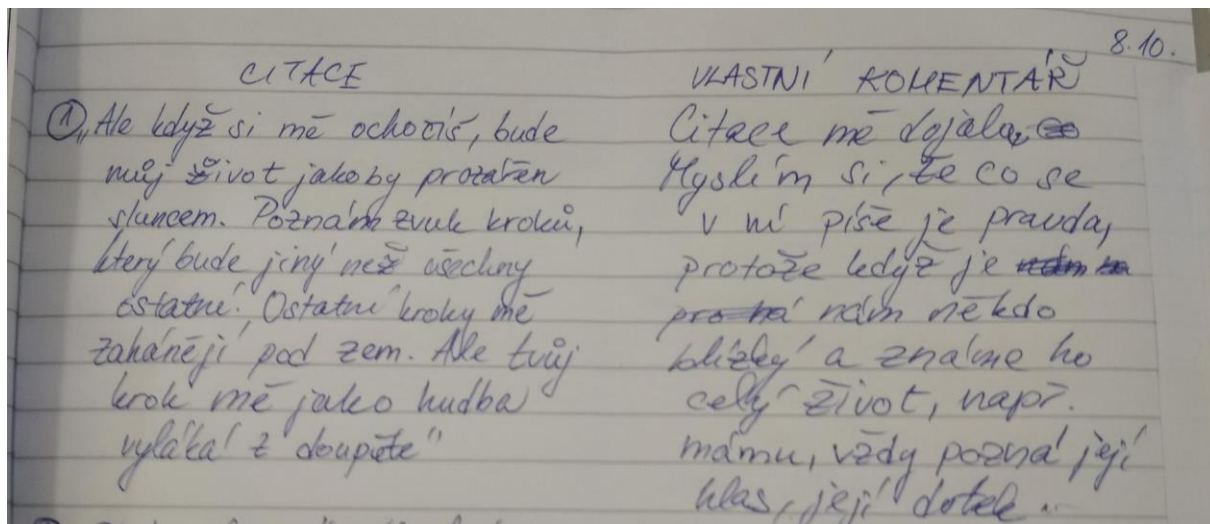 8.10.
CITACE
① „Ale když si mě ochočíš, bude
můj život jakoby prozářen
sluncem. Poznám zvuk kroků,
který bude jiný než všechny
ostatní. Ostatní kroky mě
zahánějí pod zem. Ale tvůj
krok mě jako hudba
vyláká z doupěte"
VLASTNÍ KOMENTÁŘ
Citace mě dojala,
Myslím si, že co se
v ní píše je pravda,
protože když je
nám někdo
blízký a známe ho
celý život, např.
mámu, vždy pozná její
hlas, její dotek...